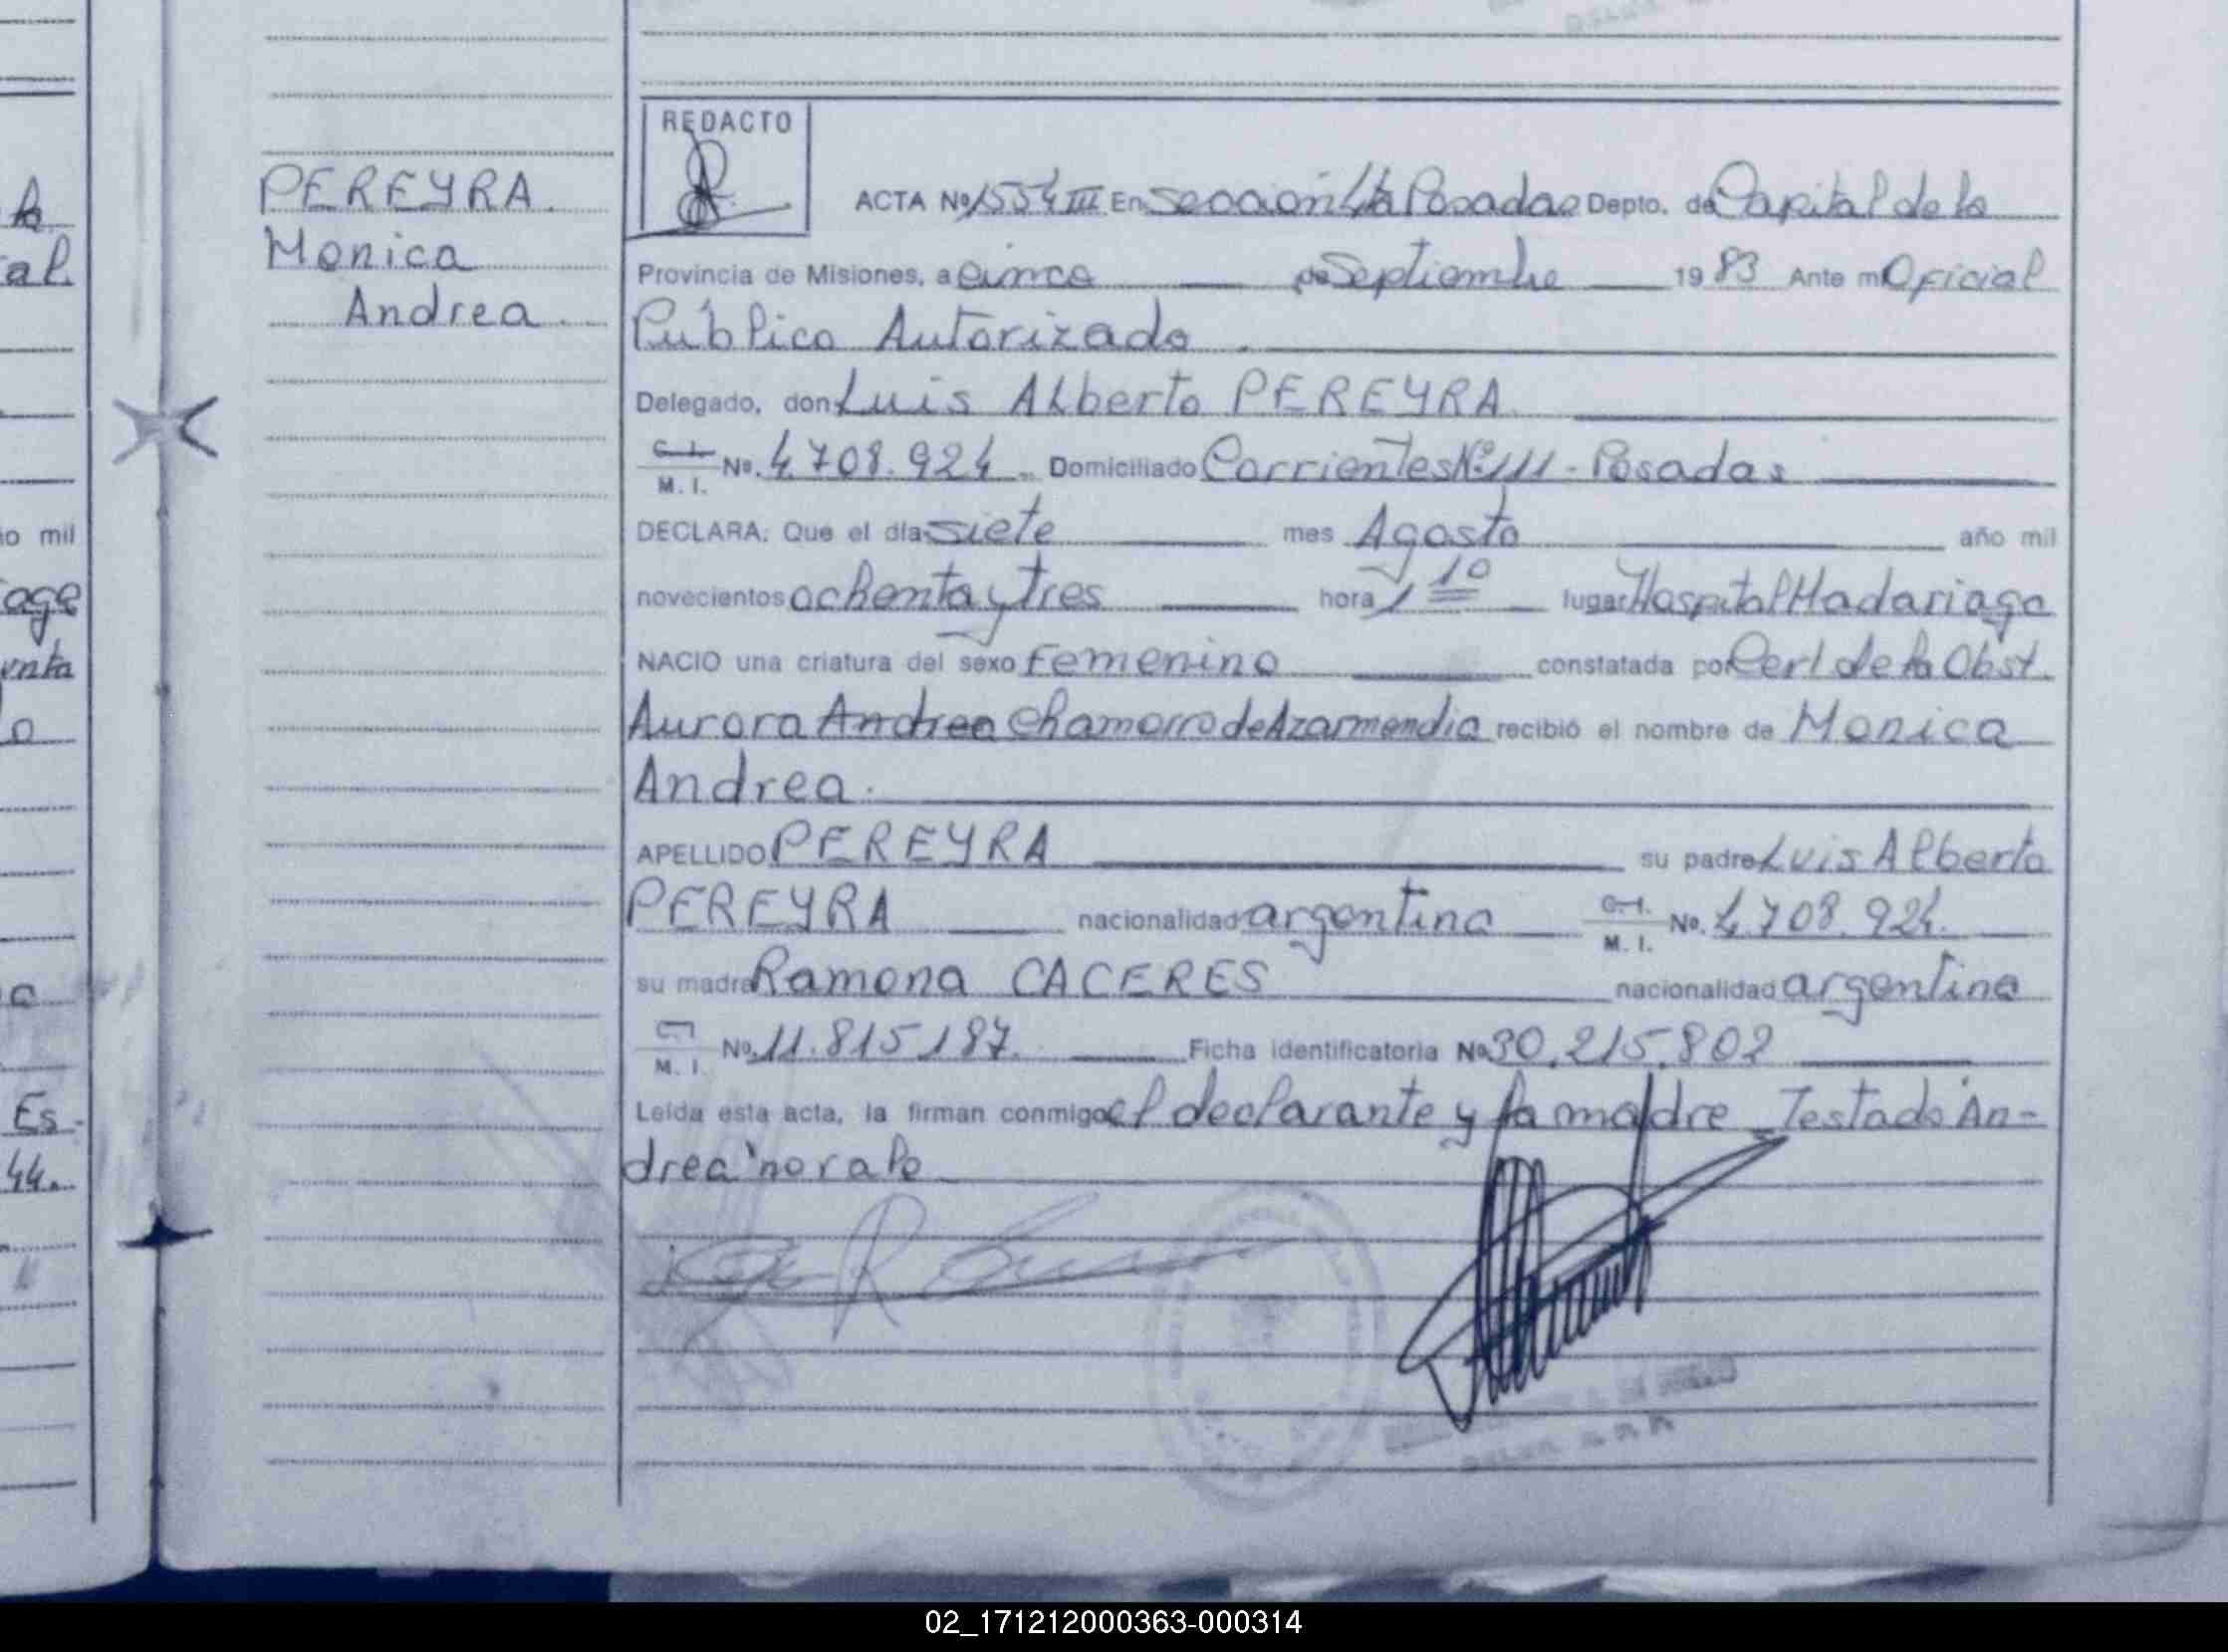 REDACTO
PEREYRA.
Monica
Andrea.
ACTA Nº 1554 III En Sección 4ta Posadas Depto. de Capital de la
Provincia de Misiones, a cinco de Septiembre 1983 Ante mi Oficial
Público Autorizado.
Delegado, don Luis Alberto PEREYRA
C. I. M. I. Nº. 4.708.924. Domiciliado Corrientes Nº 111 - Posadas
DECLARA: Que el día siete mes Agosto año mil
novecientos ochenta y tres hora 1 10 lugar Hospital Madariaga
NACIO una criatura del sexo Femenino constatada por Cert de la Obst.
Aurora Andrea Chamorro de Azarmendia recibió el nombre de Monica
Andrea.
APELLIDO PEREYRA su padre Luis Alberto
PEREYRA nacionalidad argentina C. I. M. I. Nº. 4.708.924.
su madre Ramona CACERES nacionalidad argentina
C. I. M. I. Nº. 11.815.187. Ficha identificatoria Nº 30.215.802
Leída esta acta, la firman conmigo el declarante y la madre Testado An-
drea no vale
ño mil
Es-
44.
02_171212000363-000314